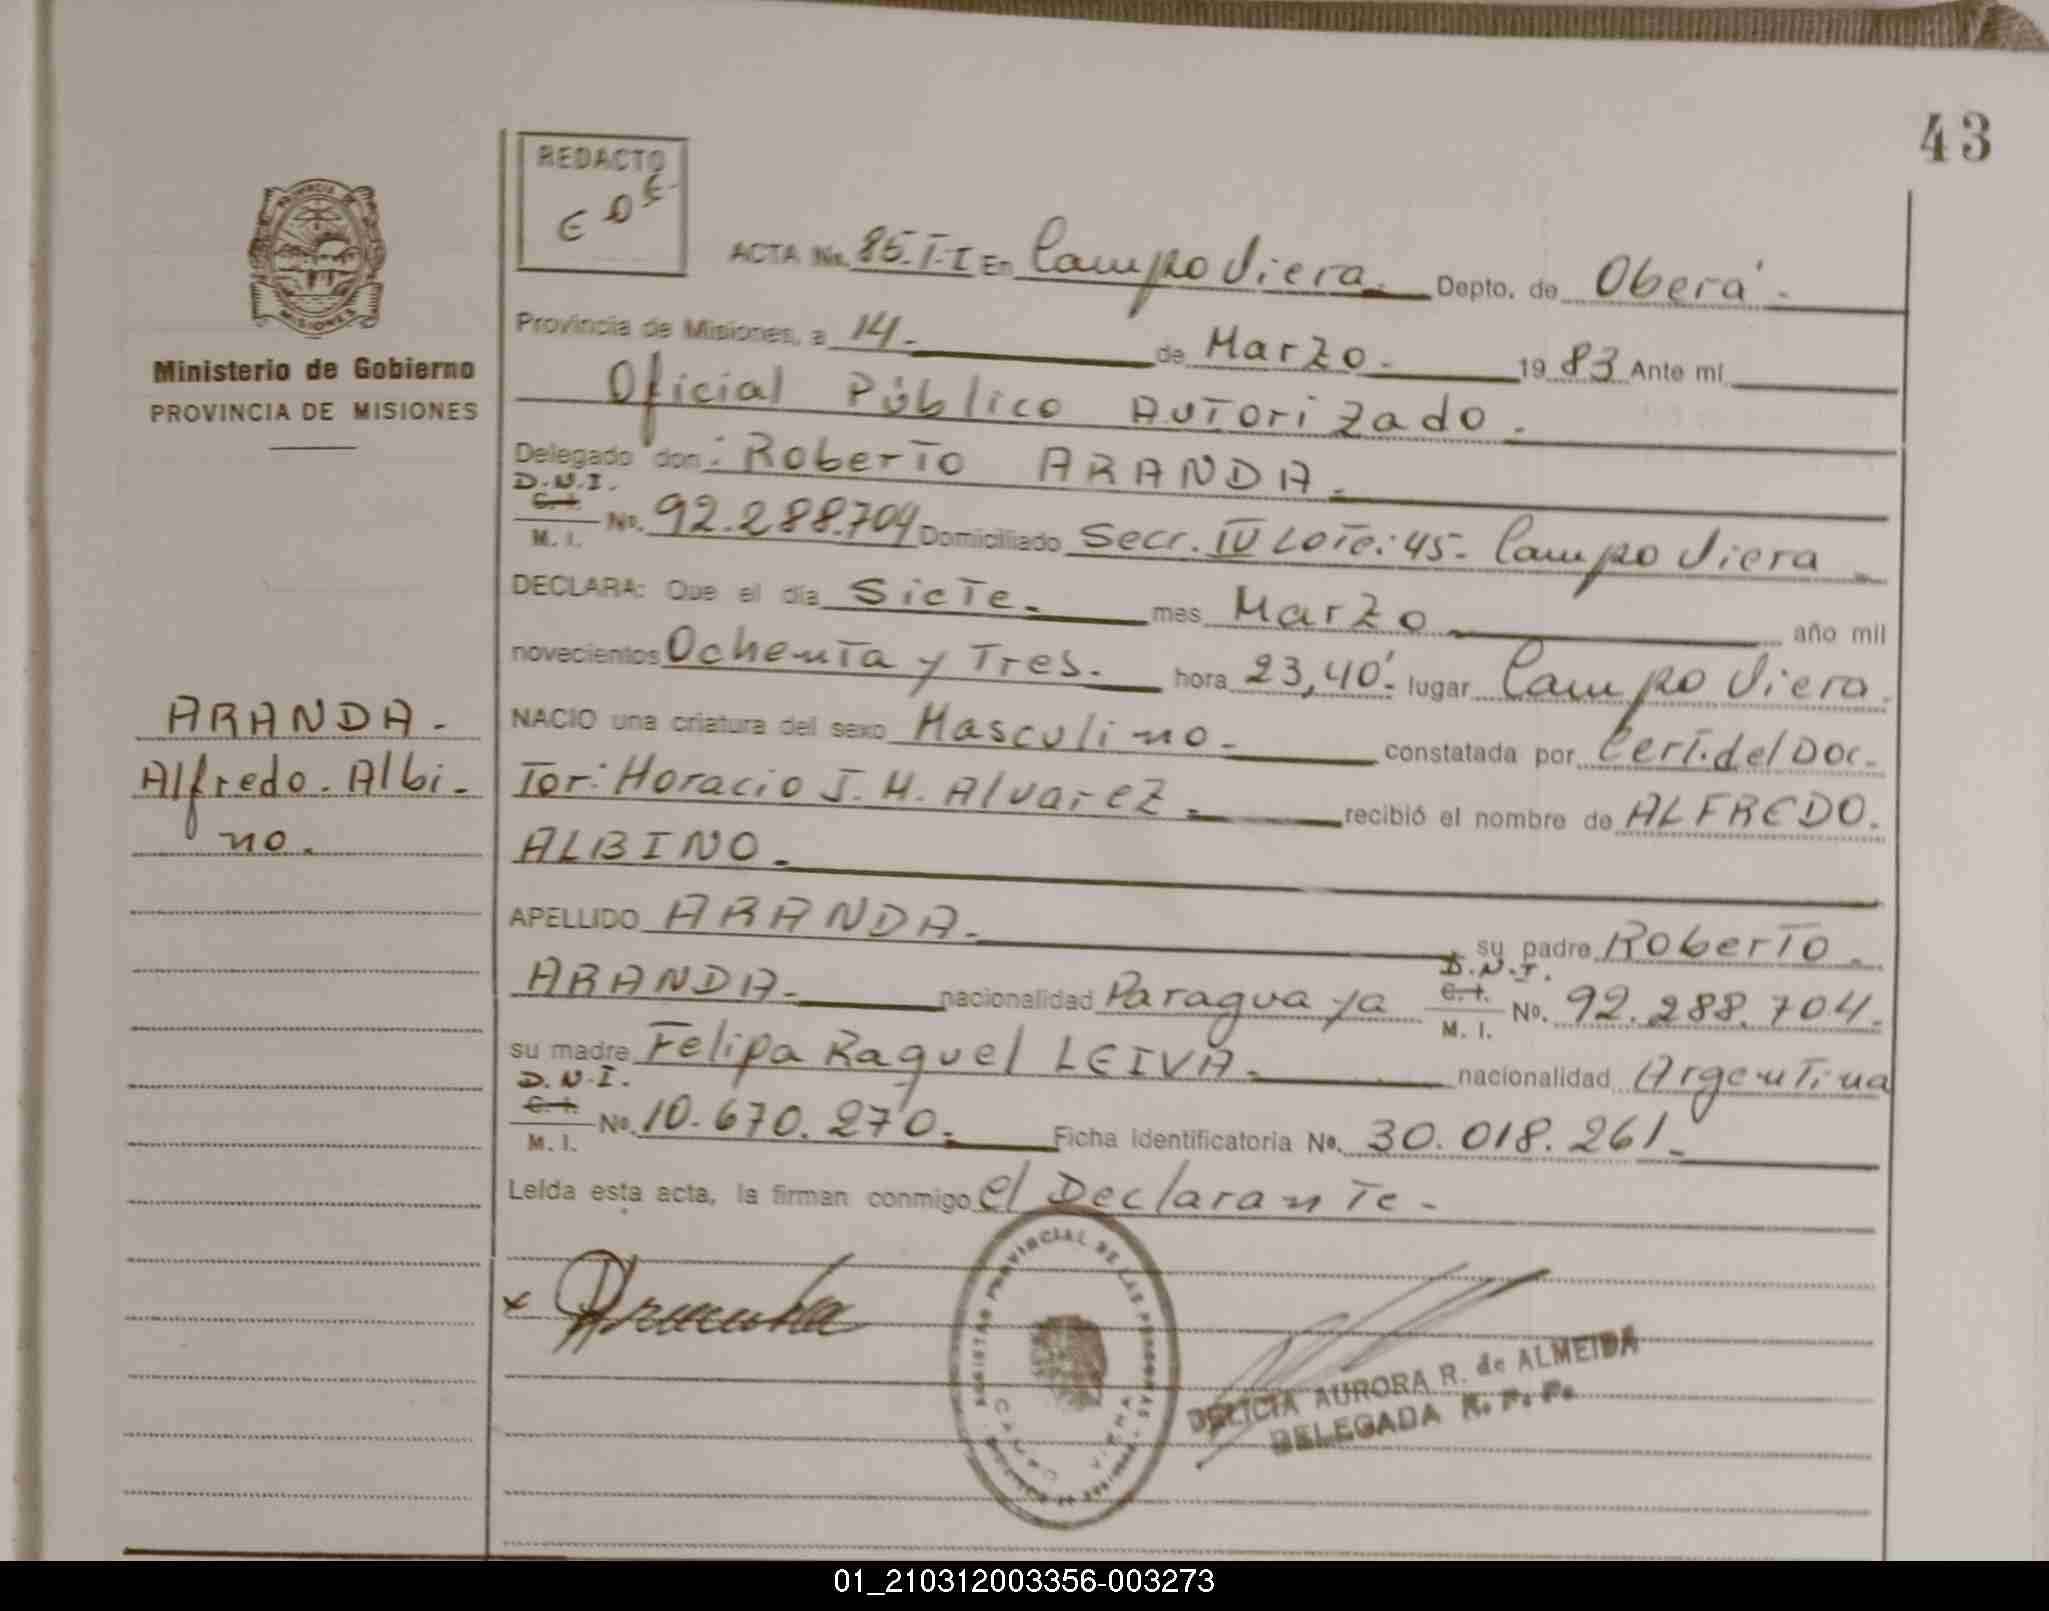 43
REDACTO
E D E
ACTA No. 85. T-I En Campo Viera. Depto. de Oberá.
Provincia de Misiones, a 14. de Marzo. 1983 Ante mi
Oficial Público Autorizado.
Delegado don: Roberto ARANDA.
D.N.I.
C.I.
M. I. No. 92.288.704 Domiciliado Secr. IV Lote: 45. Campo Viera
DECLARA: Que el día Siete. mes Marzo año mil
novecientos Ochenta y Tres. hora 23,40'. lugar Campo Viera.
NACIO una criatura del sexo Masculino. constatada por Cert. del Doc.
tor: Horacio J. H. Alvarez. recibió el nombre de ALFREDO.
ALBINO.
APELLIDO ARANDA. su padre Roberto.
D.N.I.
ARANDA. nacionalidad Paraguaya C.I. M. I. No. 92.288.704.
su madre Felipa Raquel LEIVA. nacionalidad Argentina
D.N.I.
C.I.
M. I. No. 10.670.270. Ficha identificatoria No. 30.018.261.
Leída esta acta, la firman conmigo el Declarante.
PROVINCIA DE
MISIONES
Ministerio de Gobierno
PROVINCIA DE MISIONES
ARANDA.
Alfredo. Albi-
no.
x
REGISTRO PROVINCIAL DE LAS PERSONAS
DELICIA AURORA R. de ALMEIDA
DELEGADA R. P. P.
01_210312003356-003273